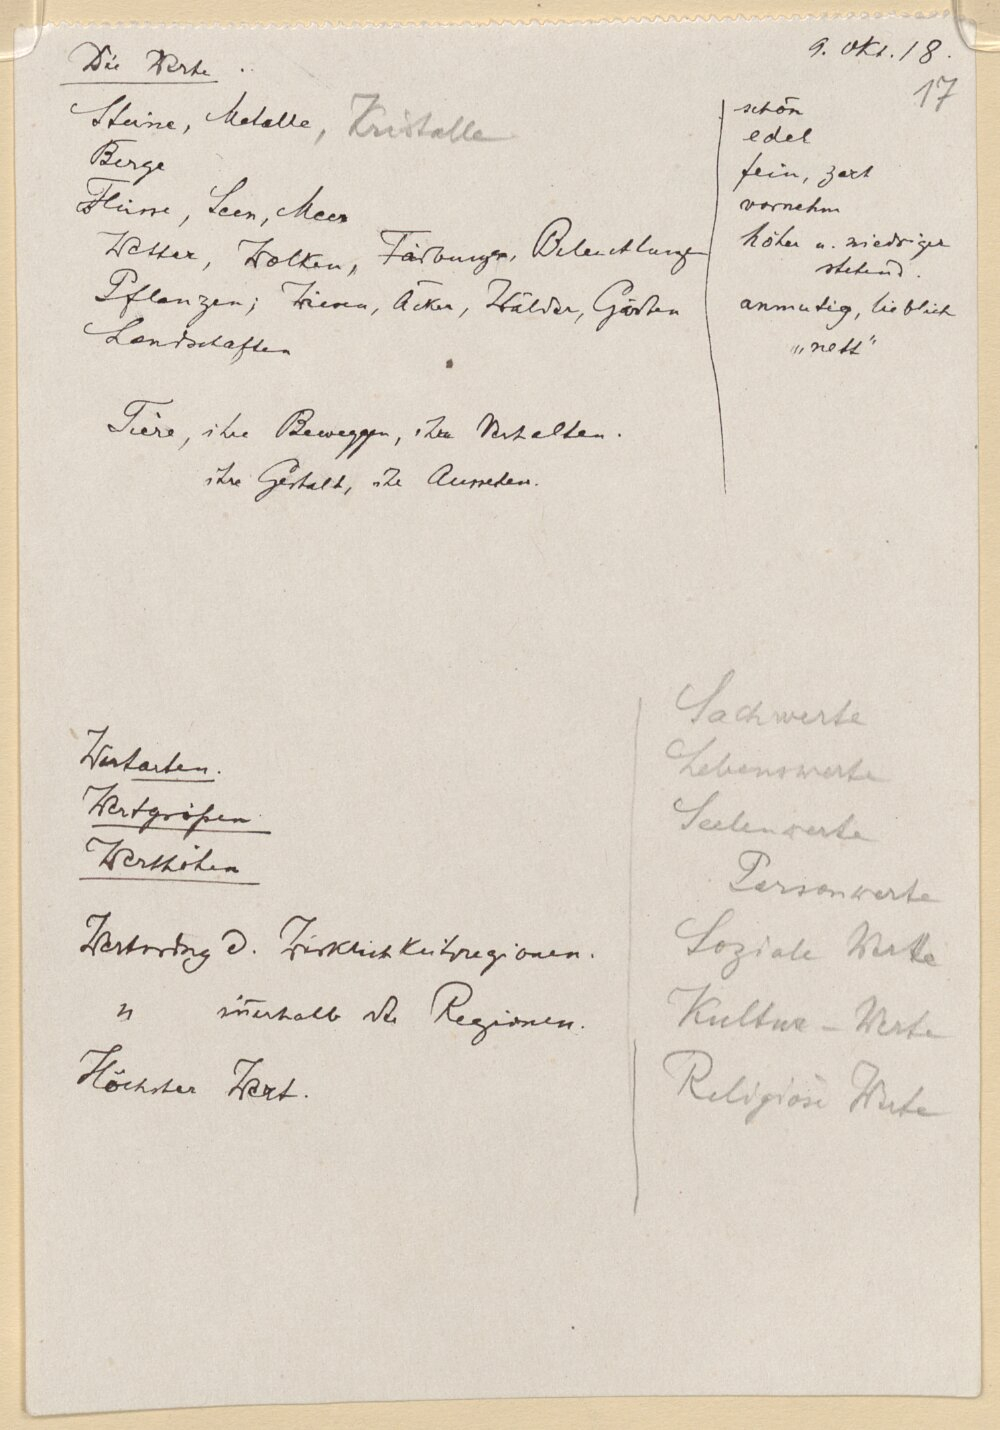 9. Okt. 18.
17
Die Werte.
Steine, Metalle, Kristalle
Berge
Flüsse, Seen, Meer
Wetter, Wolken, Färbungen, Beleuchtungen
Pflanzen; Wiesen, Äcker, Wälder, Gärten
Landschaften
Tiere, ihre Beweggen, ihr Verhalten.
ihre Gestalt, ihr Aussehen.
schön
edel
fein, zart
vornehm
höher u. niedriger
stehend.
anmutig, lieblich
„nett“
Wertarten.
Wertgrößen
Werthöhen
Wertordng d. Wirklichkeitsregionen.
" innerhalb der Regionen.
Höchster Wert.
Sachwerte
Lebenswerte
Seelenwerte
Personwerte
Soziale Werte
Kultur-Werte
Religiöse Werte